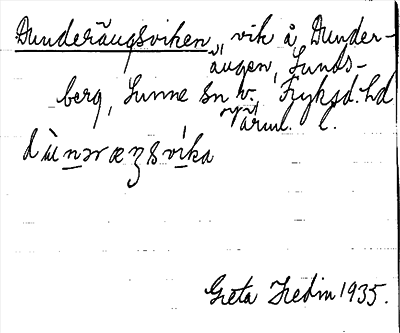 Dunderängsviken, vik å Dunder-
ängen, Lunds-
berg, Sunne sn V. Fryksd. hd
nytt Värml. l.
dùnəræŋsvika
Greta Hedin 1935.